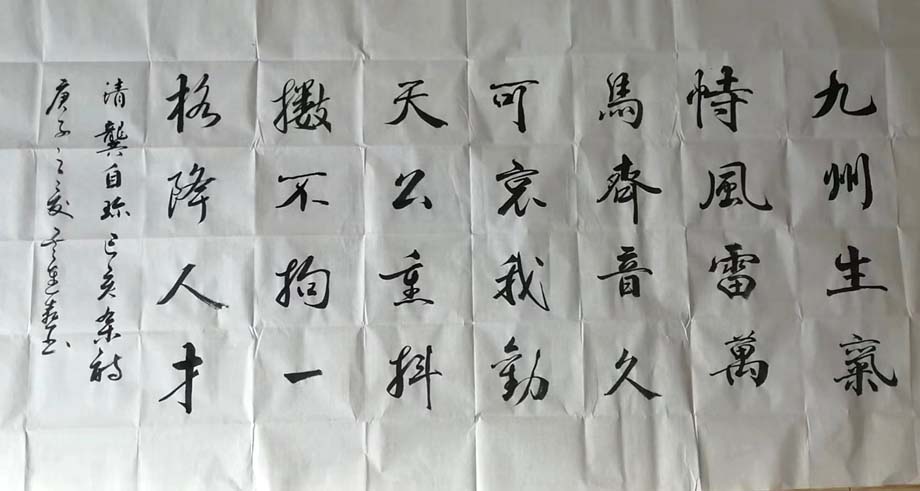 九州生氣
恃風雷萬
馬齊音久
可哀我勸
天公重抖
擻不拘一
格降人才
清龔自珍己亥雜詩
庚子之夏書